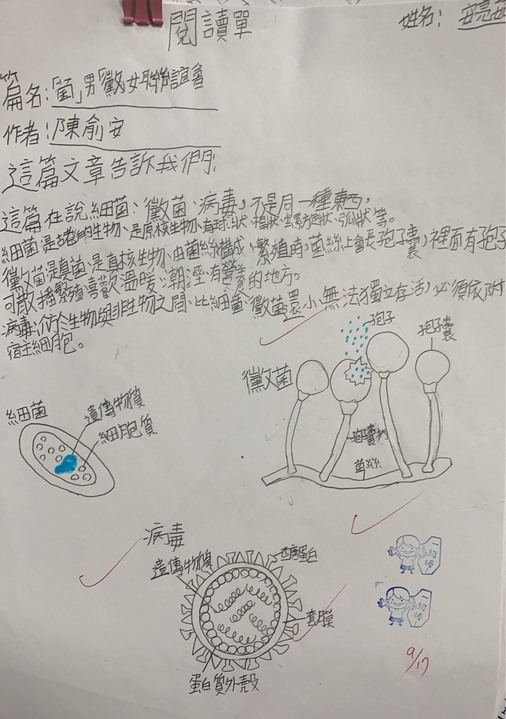 閱讀單
姓名：
篇名：「菌」男「黴」女聯誼會
作者：陳俞安
這篇文章告訴我們：
這篇在說細菌、黴菌、病毒，不是同一種東西，
細菌是古老的生物、是原核生物，有球狀、桿狀、螺旋狀、弧狀等。
黴菌是真菌，是真核生物、由菌絲構成、繁殖時，菌絲上會長孢子囊，裡面有孢子
可散播繁殖喜歡溫暖、潮溼有營養的地方。
病毒：介於生物與非生物之間，比細菌、黴菌還小，無法獨立存活，必須依附
宿主細胞。
孢子
孢子囊
黴菌
細菌
遺傳物質
細胞質
孢子囊柄
菌絲
病毒
遺傳物質
套膜
蛋白質外殼
9/17